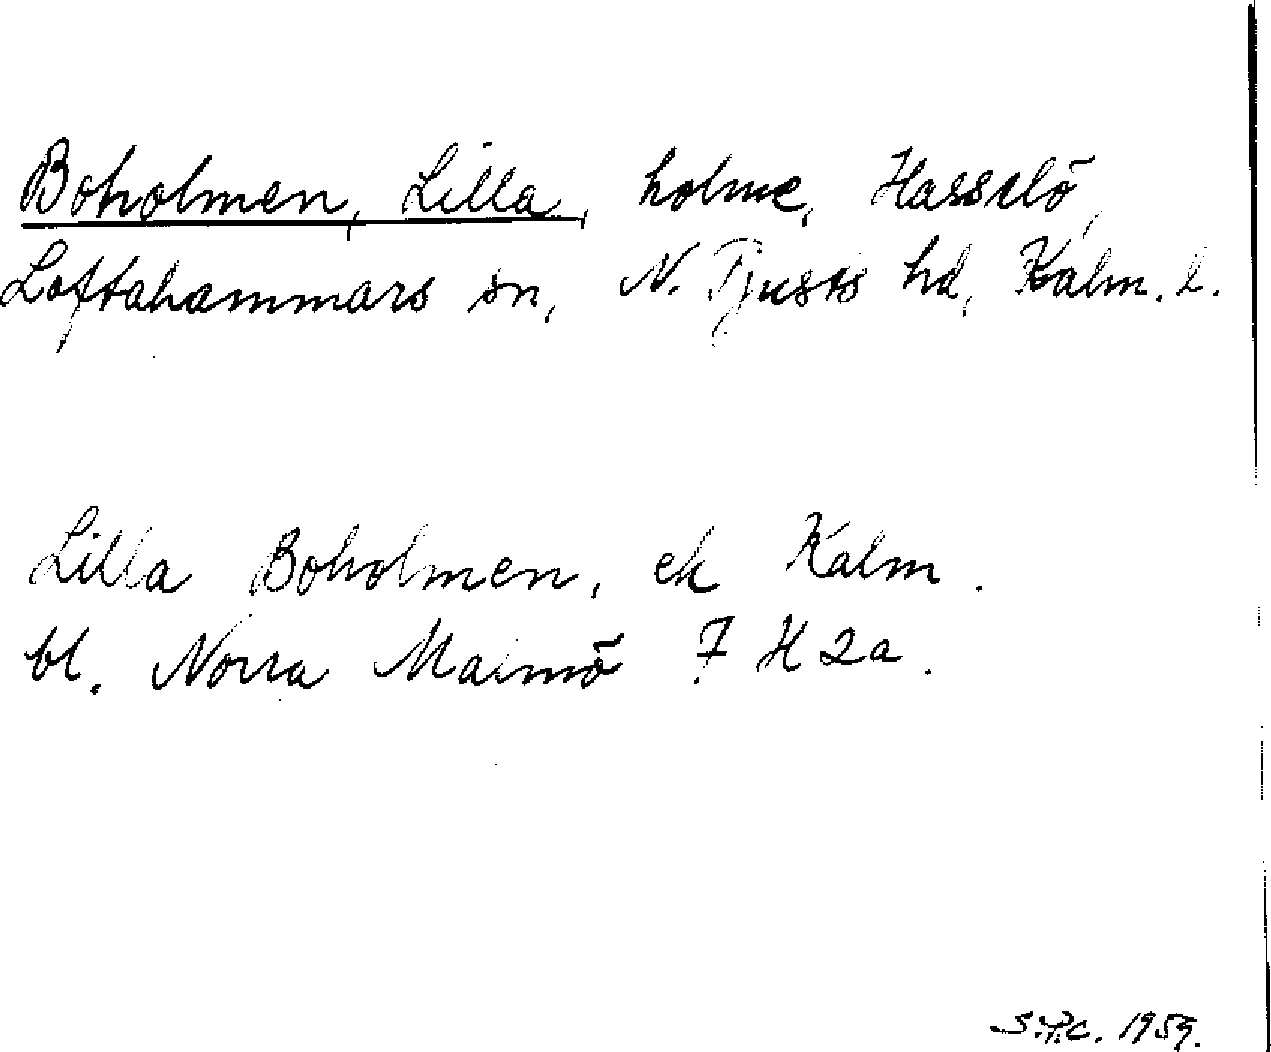 Boholmen, Lilla, holme, Hasselö,
Loftahammars sn, N. Tjusts hd, Kalm. l.
Lilla Boholmen, ek Kalm.
bl. Norra Malmö 7 H 2a.
S.P.C. 1959.